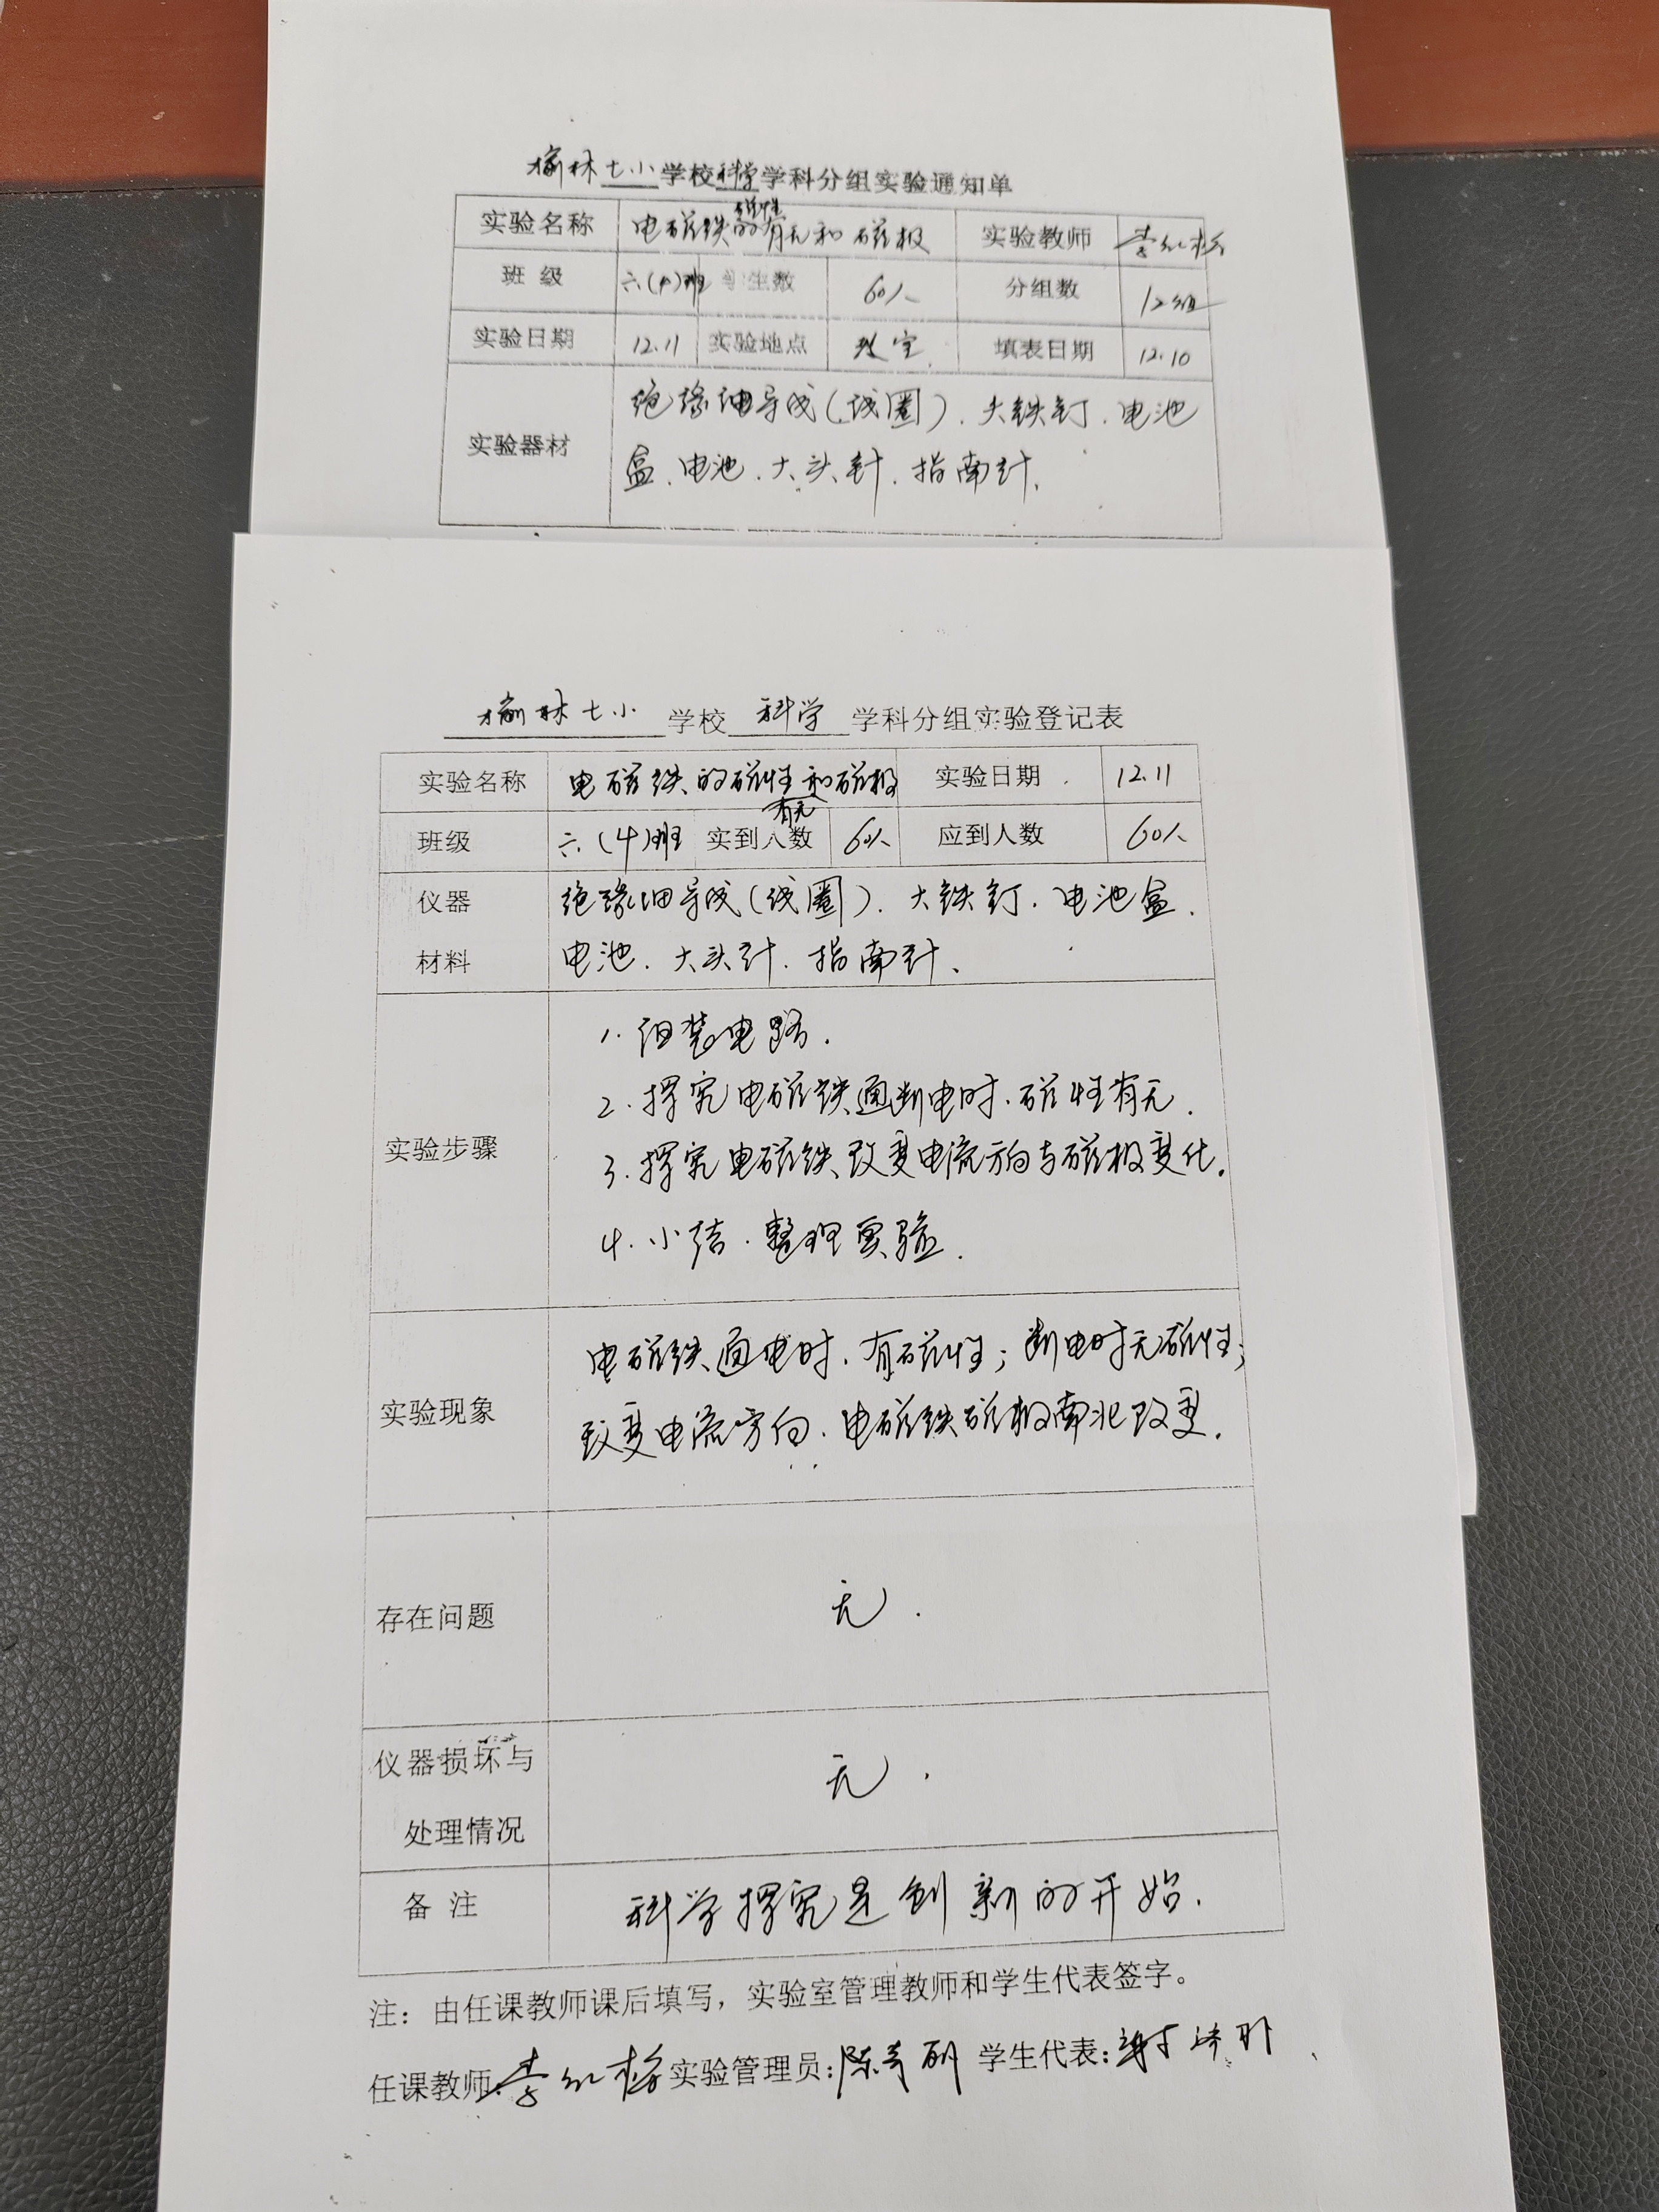 榆林七小学校科学学科分组实验通知单
实验名称 电磁铁的磁性有无和磁极 实验教师 李红梅
班级 六(4)班 学生数 60人 分组数 12组
实验日期 12.11 实验地点 教室 填表日期 12.10
实验器材 绝缘细导线(线圈).大铁钉.电池
盒.电池.大头针.指南针.
榆林七小 学校 科学 学科分组实验登记表
实验名称 电磁铁的磁性有无和磁极 实验日期 12.11
班级 六(4)班 实到人数 60人 应到人数 60人
仪器 绝缘细导线(线圈).大铁钉.电池盒.
材料 电池.大头针.指南针.
1.组装电路.
2.探究电磁铁通断电时.磁性有无.
实验步骤
3.探究电磁铁改变电流方向与磁极变化.
4.小结.整理实验.
电磁铁通电时.有磁性;断电时无磁性;
实验现象
改变电流方向.电磁铁磁极南北改变.
存在问题 无.
仪器损坏与 无.
处理情况
备注 科学探究是创新的开始.
注:由任课教师课后填写,实验室管理教师和学生代表签字。
任课教师:李红梅 实验管理员:陈 学生代表:谢